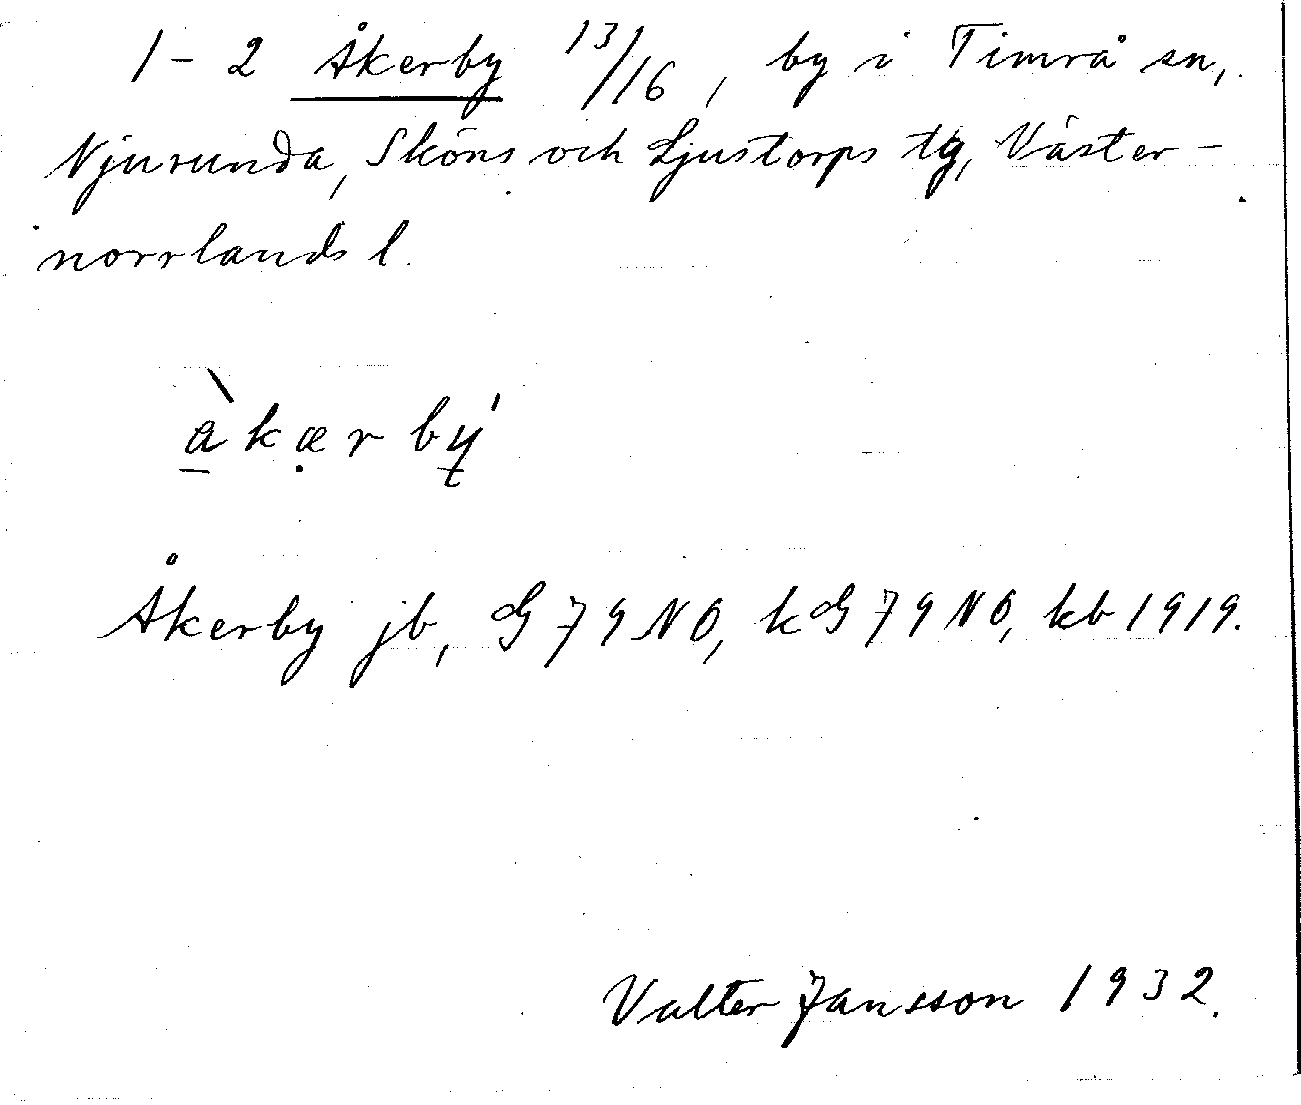 1-2 Åkerby 13/16, by i Timrå sn,
Njurunda, Sköns och Ljustorps tg, Väster-
norrlands l.
à̱kæ̣rbý
Åkerby jb, G 79 NO, kG 79 NO, kb 1919.
Valter Jansson 1932.